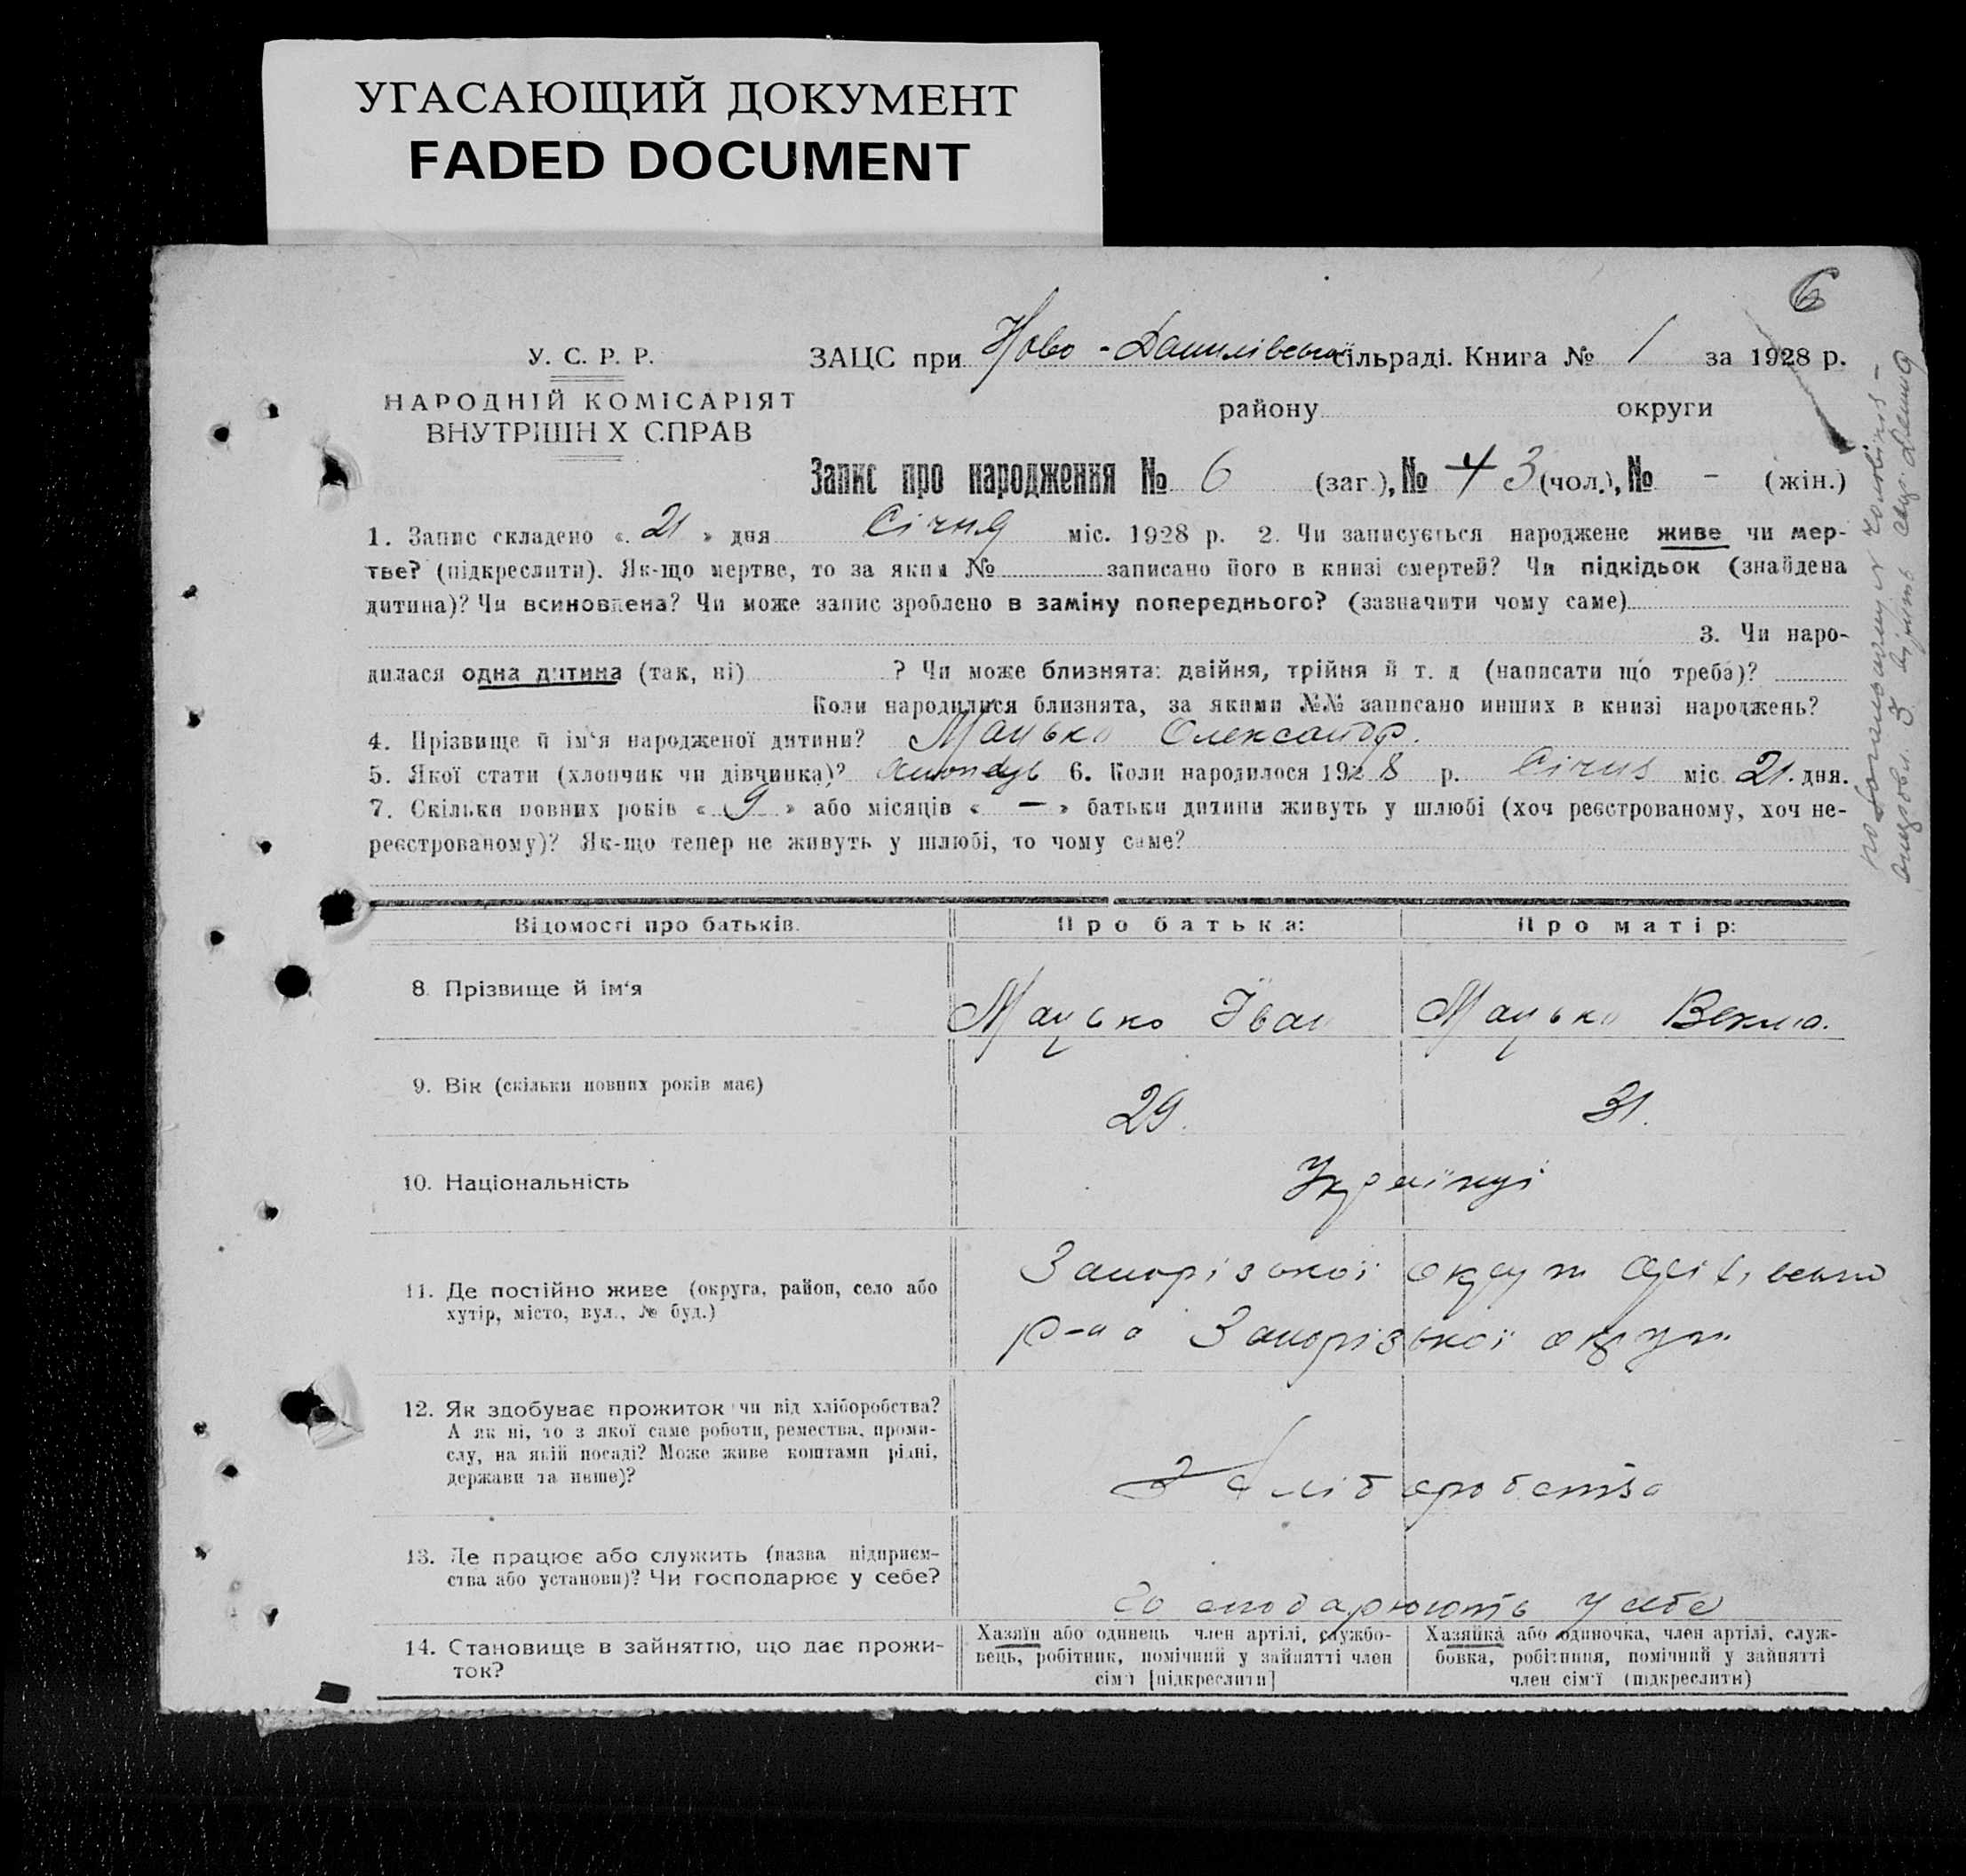 УГАСАЮЩИЙ ДОКУМЕНТ
FADED DOCUMENT
6
У. С. Р. Р.
НАРОДНІЙ КОМІСАРІЯТ
ВНУТРІШН Х СПРАВ
ЗАЦС при Ново-Данилівській сільраді. Книга № 1 за 1928 р.
району округи
Запис про народження № 6 (заг.), № 4 3 (чол.), № - (жін.)
1. Запис складено « 21 » дня Січня міс. 1928 р. 2. Чи записується народжене живе чи мер-
тве? (підкреслити). Як-що мертве, то за яким № записано його в книзі смертей? Чи підкідьок (знайдена
дитина)? Чи всиновлена? Чи може запис зроблено в заміну попереднього? (зазначити чому саме)
3. Чи наро-
дилася одна дитина (так, ні) ? Чи може близнята: двійня, трійня й т. д (написати що треба)?
Коли народилися близнята, за якими №№ записано инших в книзі народжень?
4. Прізвище й ім'я народженої дитини? Мацько Олександр.
5. Якої стати (хлопчик чи дівчинка)? 6. Коли народилося 1928 р. Січня міс 21. дня.
7. Скільки повних років « 9 » або місяців « — » батьки дитини живуть у шлюбі (хоч реєстрованому, хоч не-
реєстрованому)? Як-що тепер не живуть у шлюбі, то чому саме?
Відомості про батьків.
Про батька:
Про матір:
8. Прізвище й ім'я
Мацько Іван
Мацько Векла.
9. Вік (скільки повних років має)
29.
31.
10. Національність
Українці
11. Де постійно живе (округа, район, село або
хутір, місто, вул., № буд.)
Запорізької округи
р-на Запорізької округи
12. Як здобуває прожиток чи від хліборобства?
А як ні, то з якої саме роботи, ремества, проми-
слу, на якій посаді? Може живе коштами рідні,
держави та инше)?
З хліборобства
13. Де працює або служить (назва підприєм-
ства або установи)? Чи господарює у себе?
Господарюють у себе
14. Становище в зайняттю, що дає прожи-
ток?
Хазяїн або одинець член артілі, службо-
вець, робітник, помічний у зайнятті член
сім'ї [підкреслити]
Хазяйка або одиночка, член артілі, служ-
бовка, робітниця, помічний у зайнятті
член сім'ї (підкреслити)